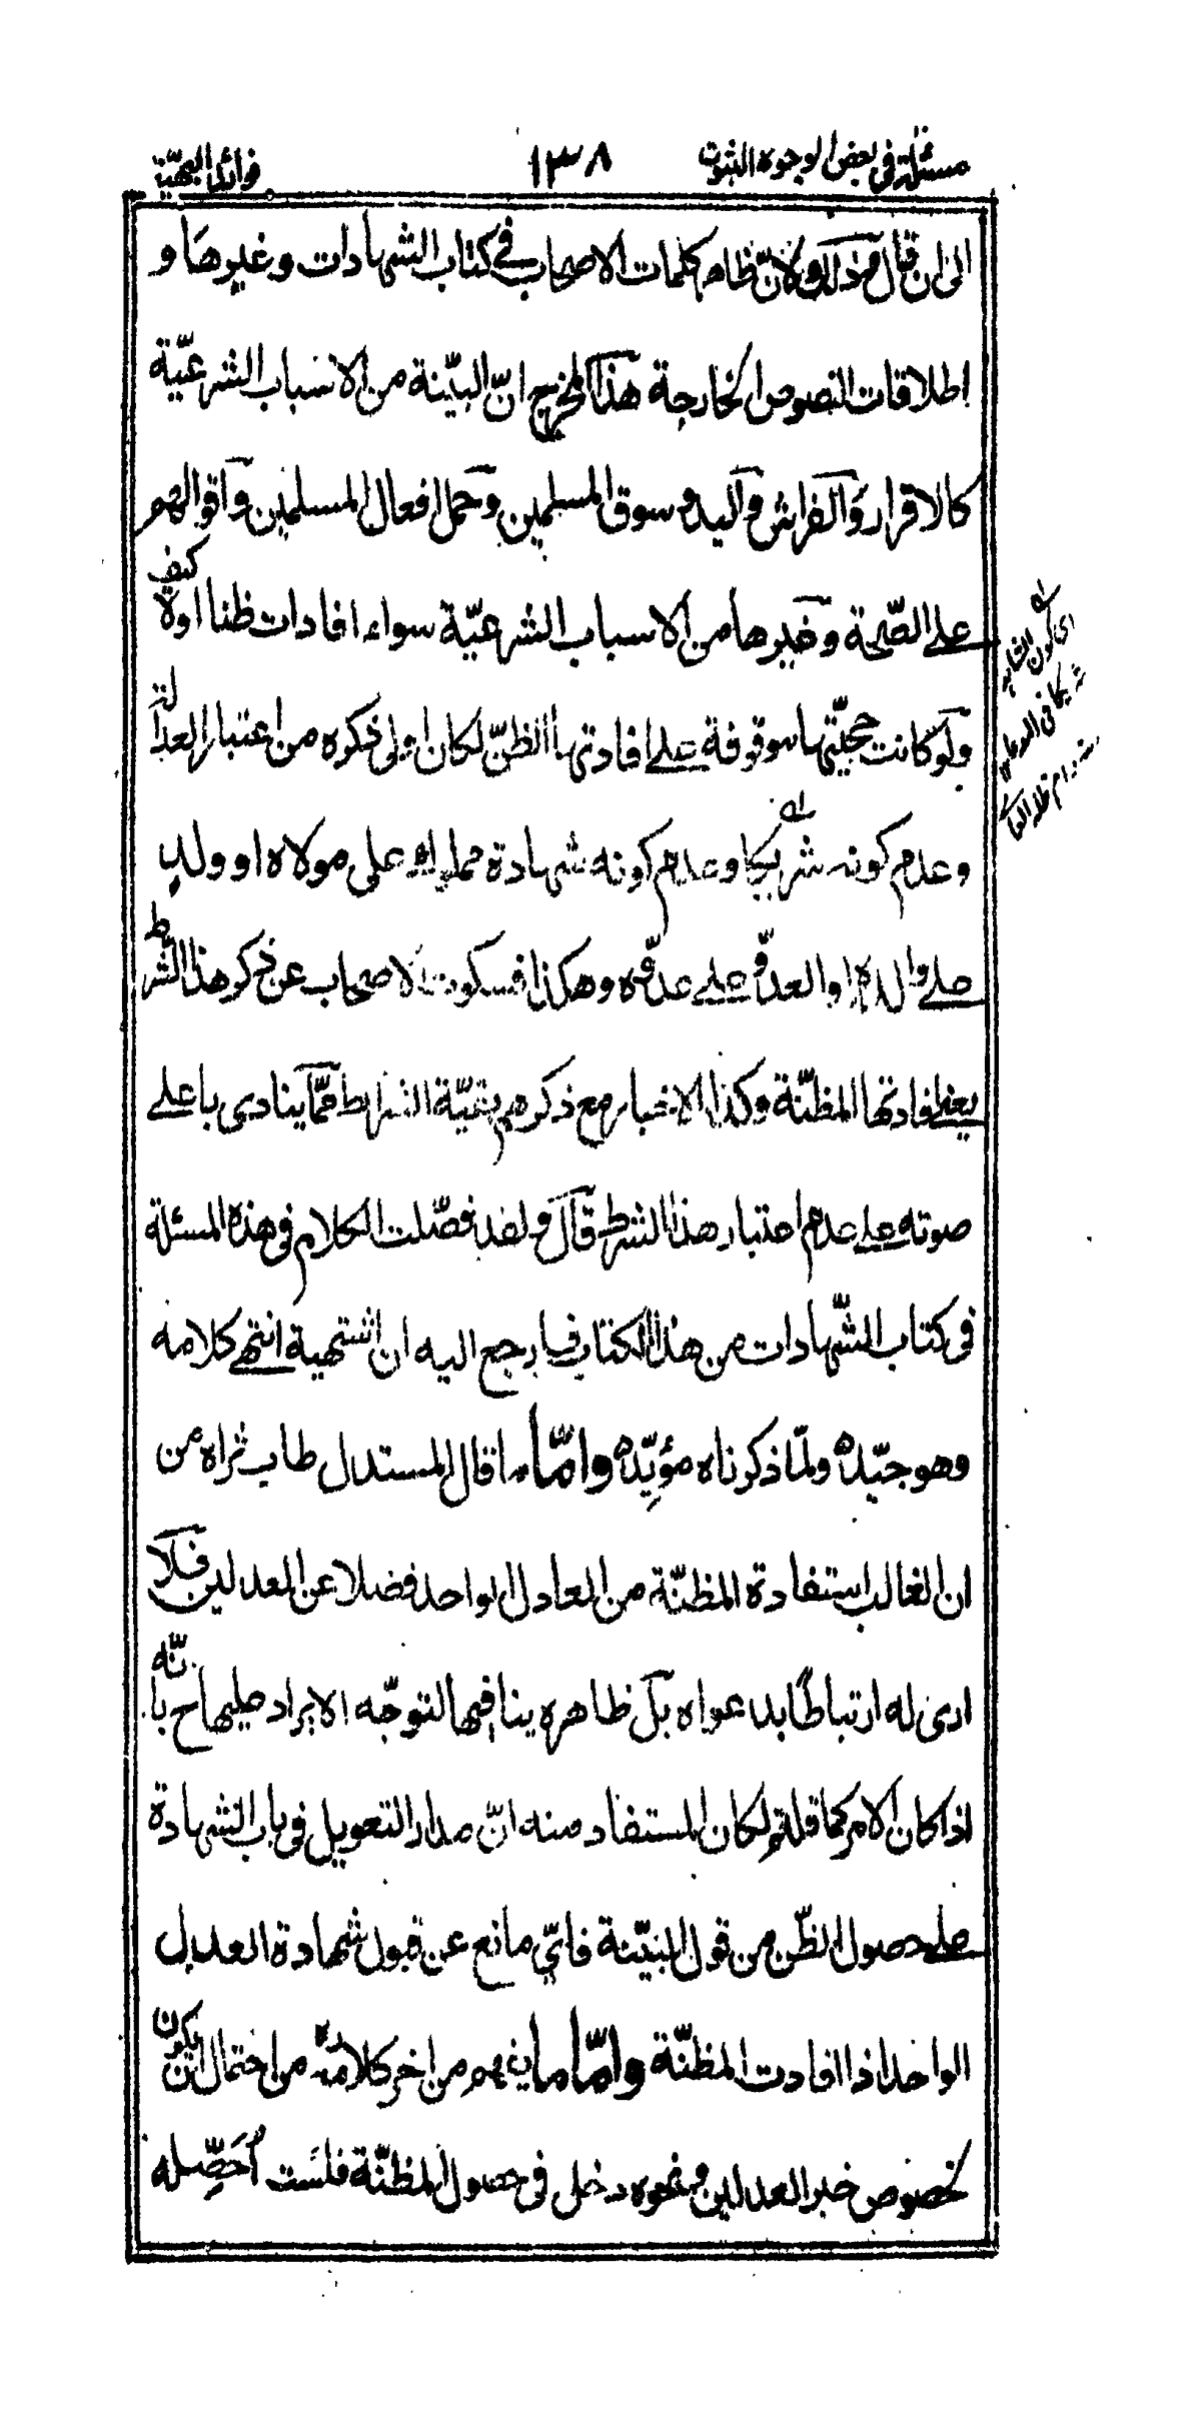 مسئلة في بعض الوجوه الثبوت
١٣٨
فوائد البهيّة
الى ان قال قدّه ذلك ولانّ ظاهر كلمات الاصحاب في كتاب الشهادات وغيرها و
اطلاقات النصوص الخارجة هذا المخرج انّ البيّنة من الاسباب الشرعيّة
كالاقرار والفراش واليد وسوق المسلمين وحمل افعال المسلمين واقوالهم
على الصّحة وغيرها من الاسباب الشرعيّة سواء افادات ظنا اولا كيف
ولو كانت حجيّتها موقوفة على افادتها الظنّ لكان اولى ذكره من اعتبار العدالة
وعدم كونه شريكا وعدم كونه شهادة مملوك على مولاه او ولد
على والده او العدوّ على عدوّه وهكذا فسكوت الاصحاب عن ذكر هذا الشرط
يعنى افادتها المظنّة وكذا الاخبار مع ذكرهم بقيّة الشرايط ممّا ينادى باعلى
صوته على عدم اعتبار هذا الشرط قال ولقد فصّلت الكلام في هذه المسئلة
في كتاب الشّهادات من هذا الكتاب فارجع اليه ان اشتهيته انتهى كلامه
وهو جيّد ولما ذكرناه مؤيّد وامّا ما قال المستدل طاب ثراه من
ان الغالب استفادة المظنّة من العادل الواحد فضلا عن العدلين فلا
ارى له ارتباطا بدعواه بل ظاهره ينافيها لتوجّه الايراد عليها ح بانّه
اذا كان الامر كما قلتم لكان المستفاد منه انّ مدار التعويل في باب الشهادة
على حصول الظّن من قول البيّنة فايّ مانع عن قبول شهادة العدل
الواحد اذا افادت المظنّة وامّا ما يفهم من اخر كلامه ره من احتمال ان يكون
لخصوص خبر العدلين ونحوه دخل في حصول المظنّة فلست اُحَصِّله
اى كون الشاهد
شريكا في المدعى
منه دام ظله العالي